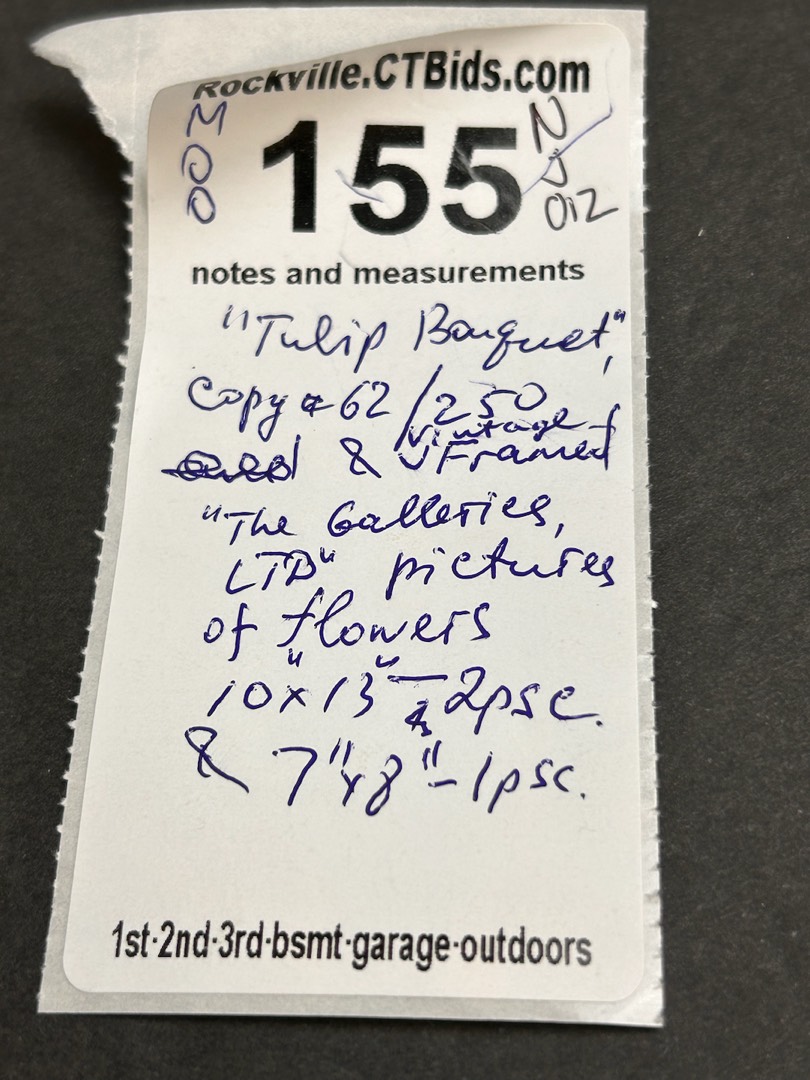 Rockville.CTBids.com
155
notes and measurements
"Tulip Bouquet",
Copy # 62/250
& Vintage Framed
"The Galleries,
LTD" pictures
of flowers
10"x13" - 2psc.
& 7"x8" - 1psc.
1st·2nd·3rd·bsmt·garage·outdoors